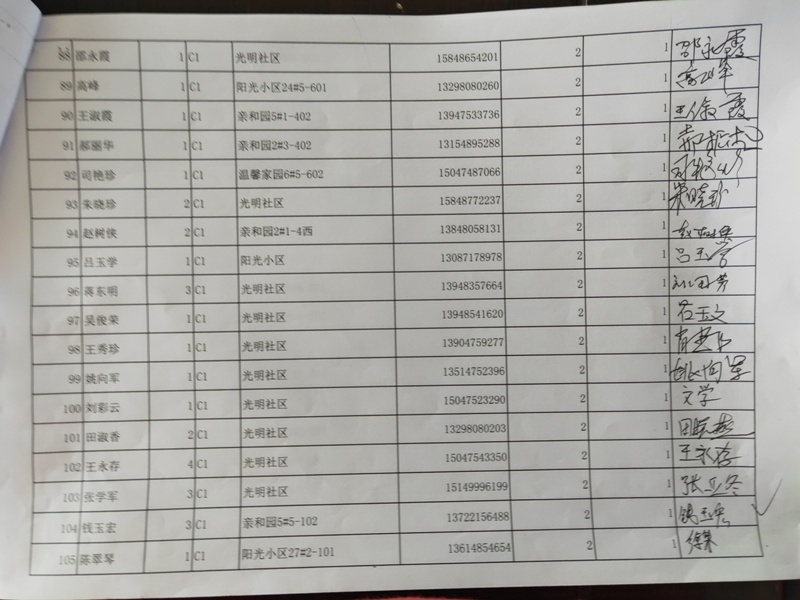 88 邵永霞 1 C1 光明社区 15848654201 2 1 邵永霞
89 高峰 1 C1 阳光小区24#5-601 13298080260 2 1
90 王淑霞 1 C1 亲和园5#1-402 13947533736 2 1 王淑霞
91 郝丽华 1 C1 亲和园2#3-402 13154895288 2 1
92 司艳珍 1 C1 温馨家园6#5-602 15047487066 2 1
93 朱晓珍 2 C1 光明社区 15848772237 2 1 朱晓珍
94 赵树侠 2 C1 亲和园2#1-4西 13848058131 2 1
95 吕玉学 1 C1 阳光小区 13087178978 2 1 吕玉学
96 蒋东明 3 C1 光明社区 13948357664 2 1
97 吴俊荣 1 C1 光明社区 13948541620 2 1 石玉文
98 王秀珍 1 C1 光明社区 13904759277 2 1
99 姚向军 1 C1 光明社区 13514752396 1 姚向军
100 刘彩云 1 C1 光明社区 15047523290 2 1 文学
101 田淑香 2 C1 光明社区 13298080203 2 1
102 王永存 4 C1 光明社区 15047543350 2 1 王永存
103 张学军 3 C1 光明社区 15149996199 2 1 张亚冬
104 钱玉宏 3 C1 亲和园5#5-102 13722156488 2 1 钱玉宏
105 陈翠琴 1 C1 阳光小区27#2-101 13614854654 2 1